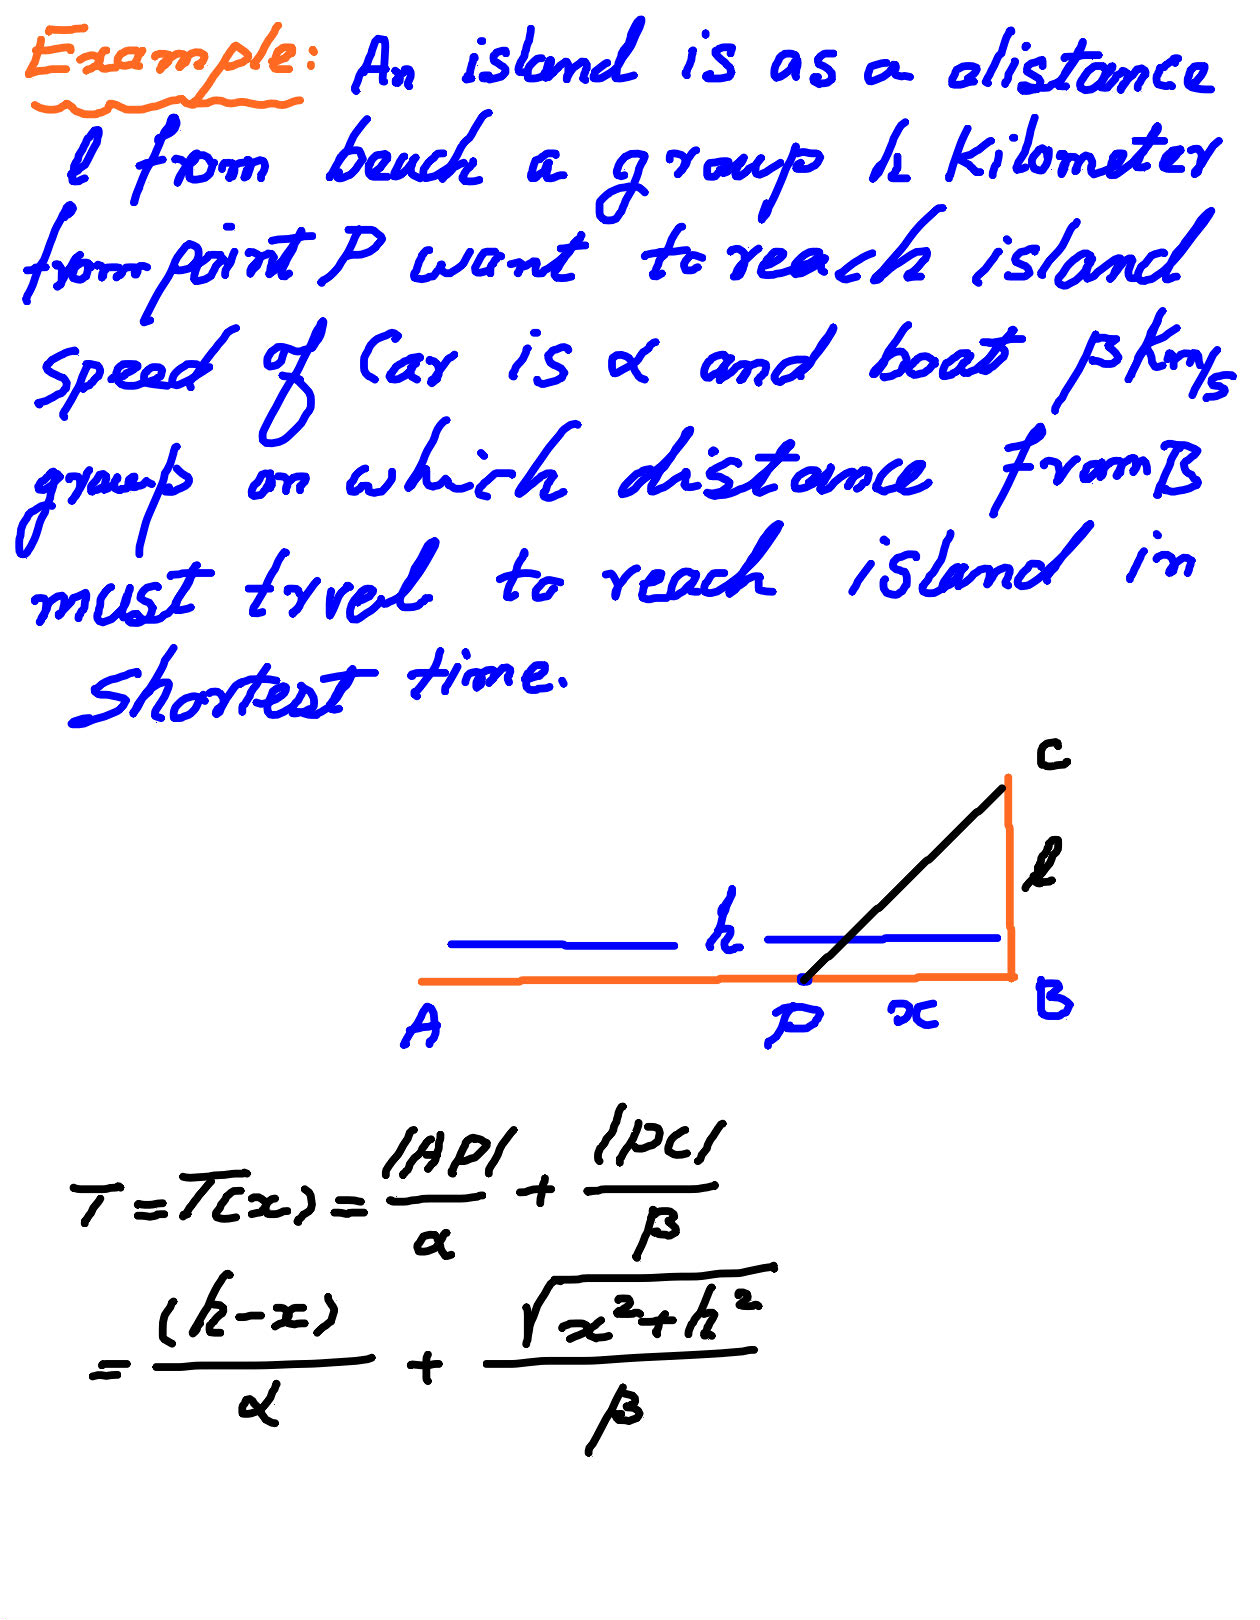 Example: An island is as a distance
l from beach a group h kilometer
from point P want to reach island
speed of Car is α and boat β Km/s
group on which distance from B
must trvel to reach island in
shortest time.
C
l
h
A P x B
T = T(x) = |AP|/α + |PC|/β
= (h-x)/α + √(x²+h²)/β